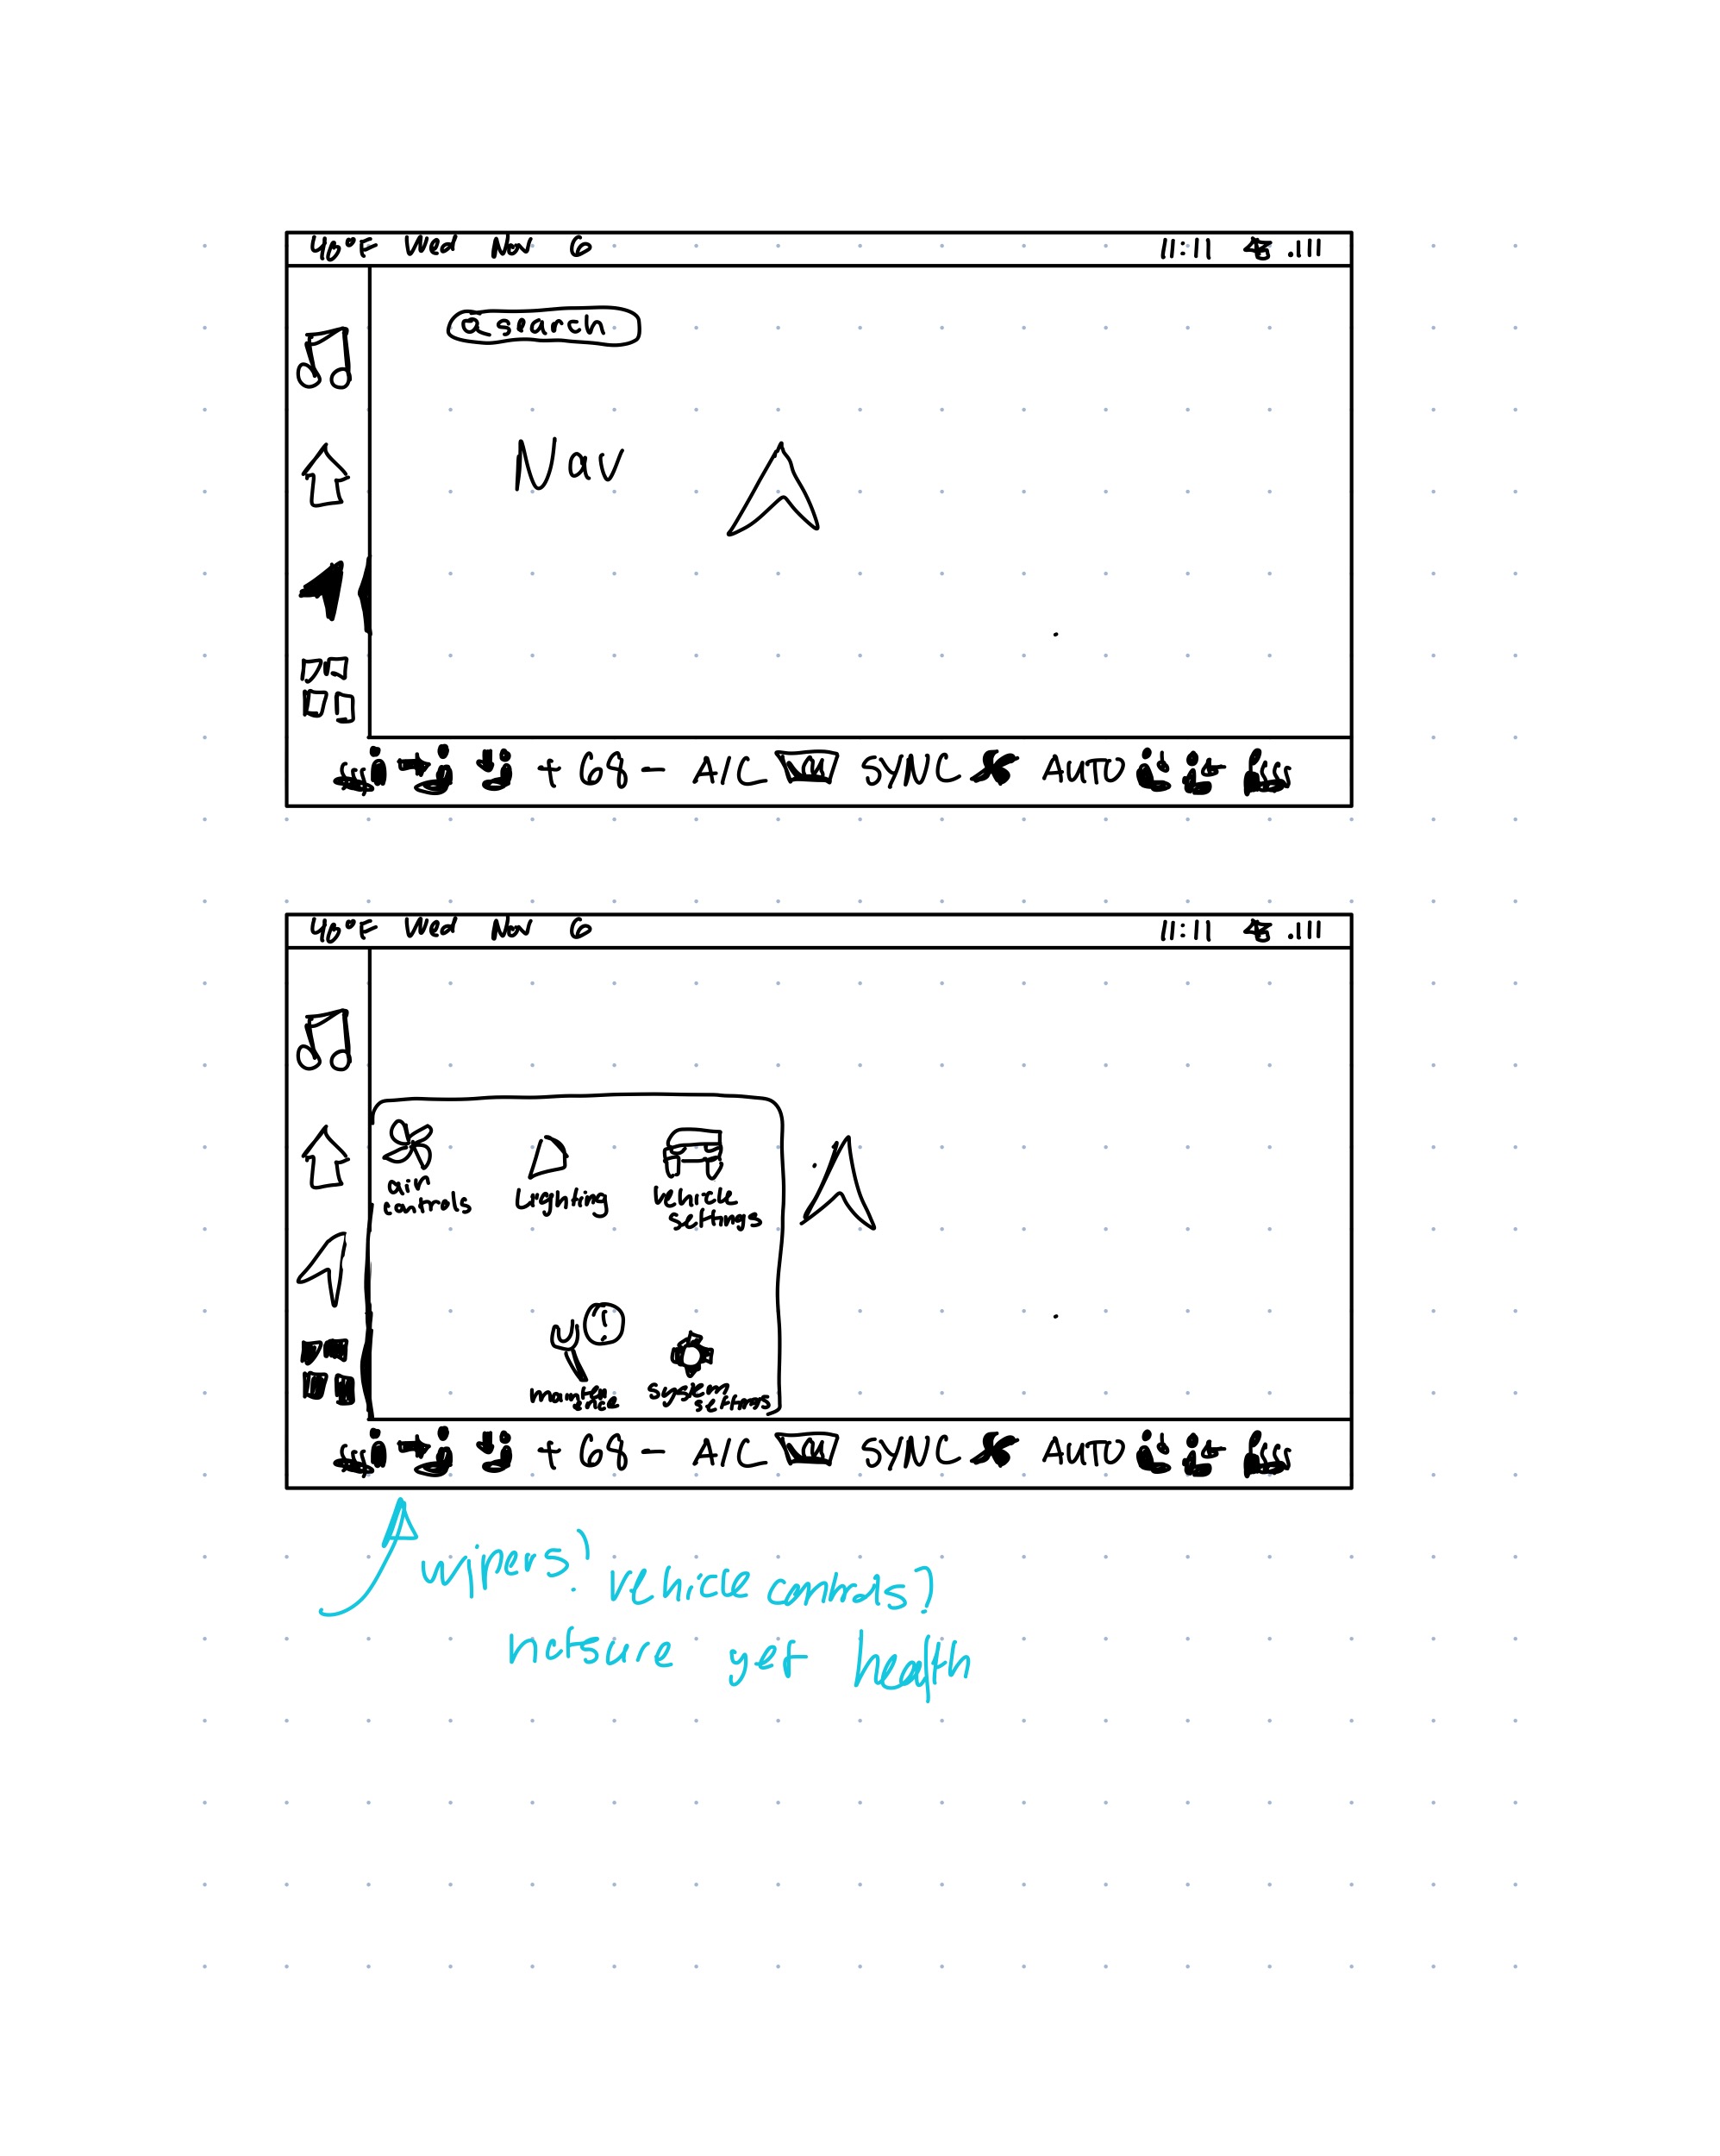 40°F Wed Nov 6 11:11
search
Nav
+ 68 - A/C SYNC AUTO
40°F Wed Nov 6 11:11
air controls
Lighting
Vehicle settings
mainten ence
system settings
+ 68 - A/C SYNC AUTO
wipers? Vehicle controls?
not sure yet health